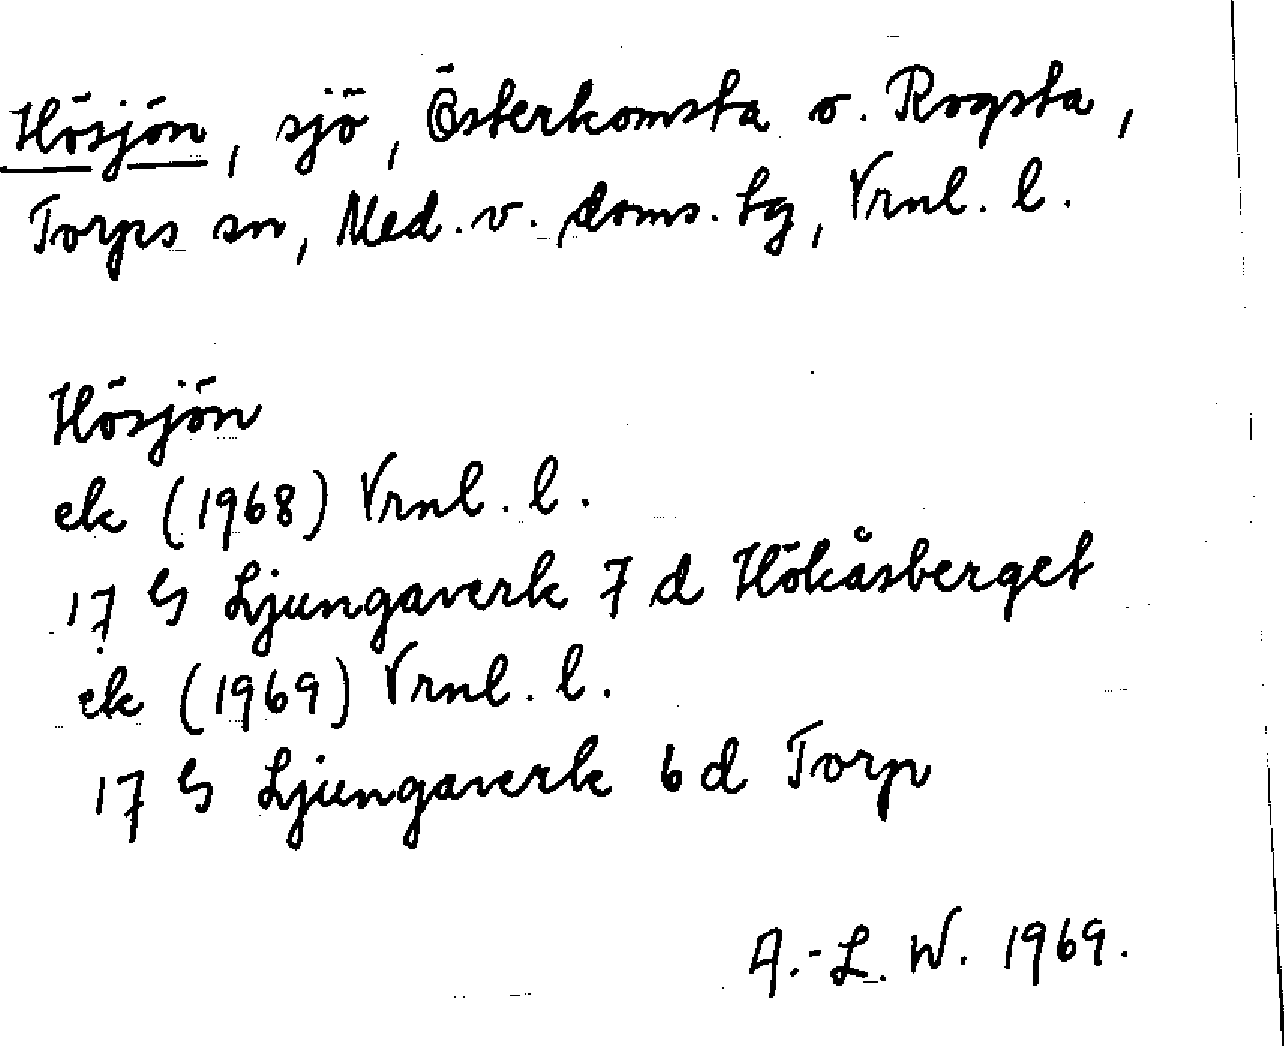 Hösjön, sjö, Österkomsta o. Rogsta,
Torps sn, Med. v. doms. tg, Vrnl. l.
Hösjön
ek (1968) Vrnl. l.
17 G Ljungaverk 7 d Hökåsberget
ek (1969) Vrnl. l.
17 G Ljungaverk 6 d Torp
A.-L. W. 1969.